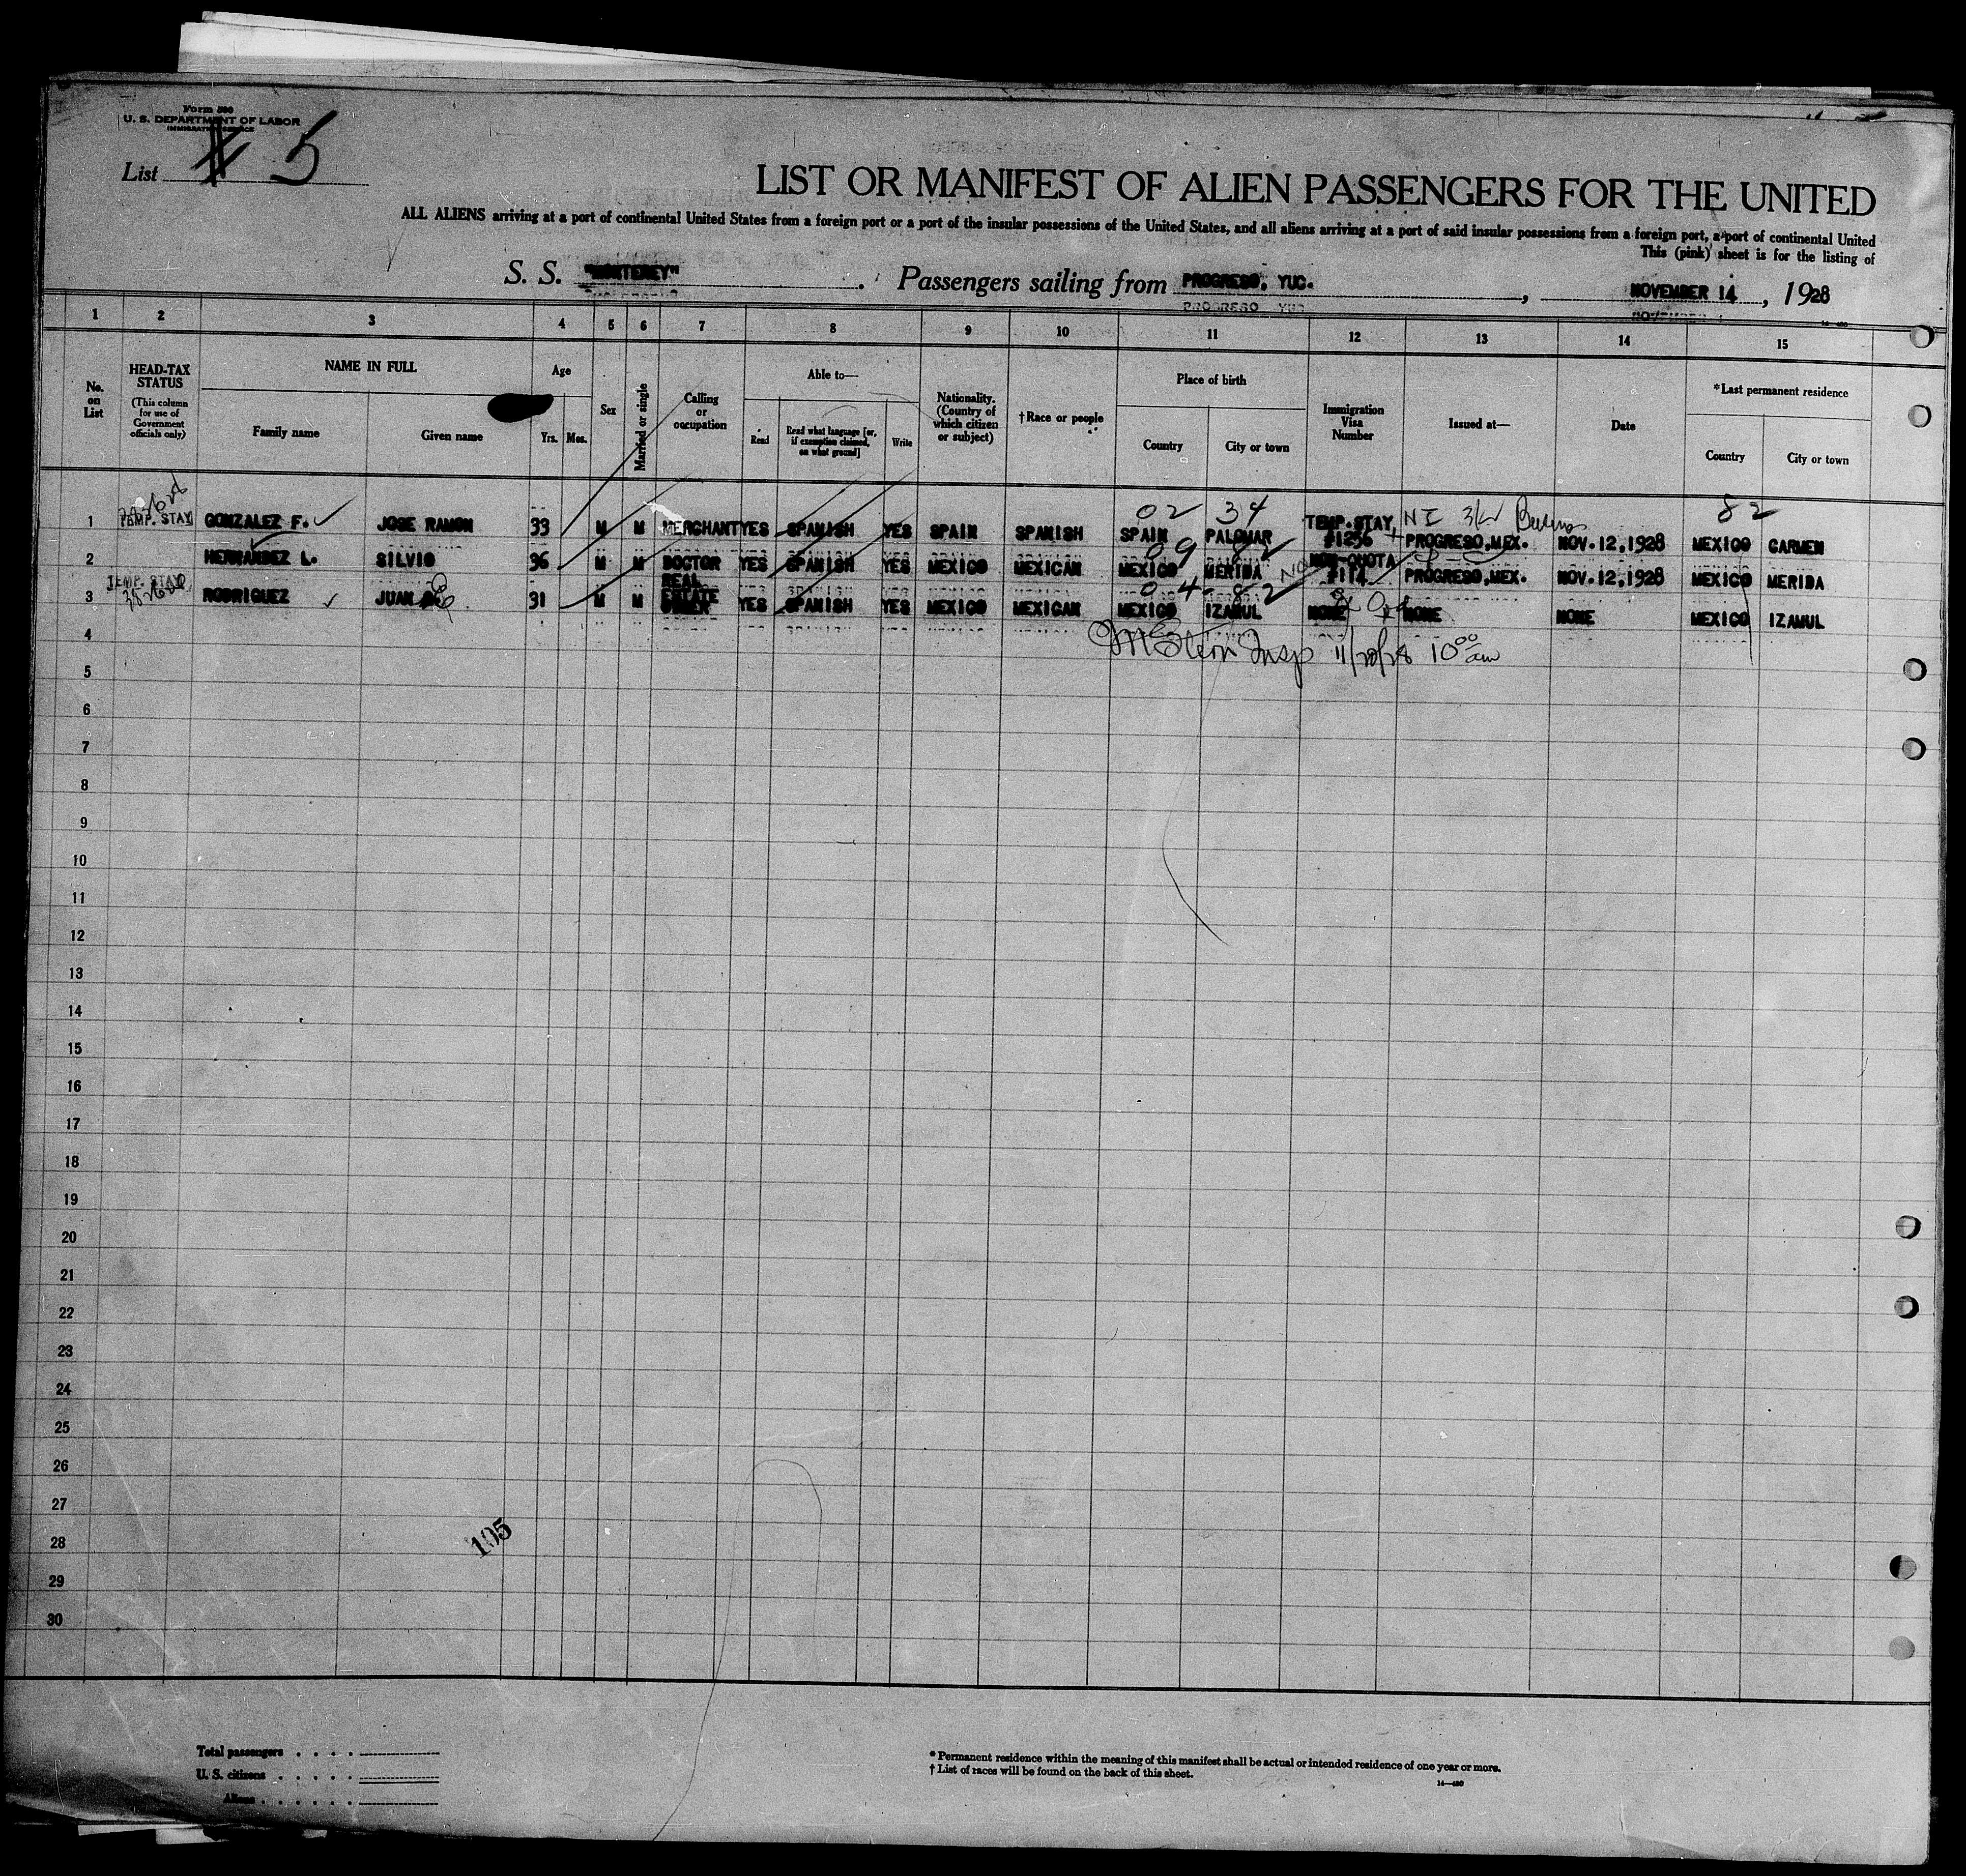 Form 500
U. S. DEPARTMENT OF LABOR
IMMIGRATION SERVICE
List # 5
LIST OR MANIFEST OF ALIEN PASSENGERS FOR THE UNITED
ALL ALIENS arriving at a port of continental United States from a foreign port or a port of the insular possessions of the United States, and all aliens arriving at a port of said insular possessions from a foreign port, a port of continental United
This (pink) sheet is for the listing of
S. S. "MONTEREY" Passengers sailing from PROGRESO, YUC. , NOVEMBER 14 , 1928
1 2 3 4 5 6 7 8 9 10 11 12 13 14 15
No. on List
HEAD-TAX STATUS
(This column for use of Government officials only)
NAME IN FULL
Family name Given name
Age
Yrs. Mos.
Sex
Married or single
Calling or occupation
Able to—
Read Read what language [or, if exemption claimed, on what ground] Write
Nationality. (Country of which citizen or subject)
†Race or people
Place of birth
Country City or town
Immigration Visa Number
Issued at—
Date
*Last permanent residence
Country City or town
02 34 82
1 TEMP. STAY GONZALEZ F. JOSE RAMON 33 M M MERCHANT YES SPANISH YES SPAIN SPANISH SPAIN PALOMAR TEMP.STAY, #1256 PROGRESO,MEX. NOV.12,1928 MEXICO CARMEN
2 HERNANDEZ L. SILVIO 36 M M DOCTOR YES SPANISH YES MEXICO MEXICAN MEXICO MERIDA NON-QUOTA #114 PROGRESO,MEX. NOV.12,1928 MEXICO MERIDA
04 82
3 TEMP. STAY RODRIGUEZ JUAN 31 M M REAL ESTATE OWNER YES SPANISH YES MEXICO MEXICAN MEXICO IZAMUL NONE NONE NONE MEXICO IZAMUL
4
Insp 11/20/28 10 00 am
5
6
7
8
9
10
11
12
13
14
15
16
17
18
19
20
21
22
23
24
25
26
27
28
29
30
105
Total passengers . . . .
U. S. citizens . . . . .
Aliens . . . . . .
* Permanent residence within the meaning of this manifest shall be actual or intended residence of one year or more.
† List of races will be found on the back of this sheet.
14—430